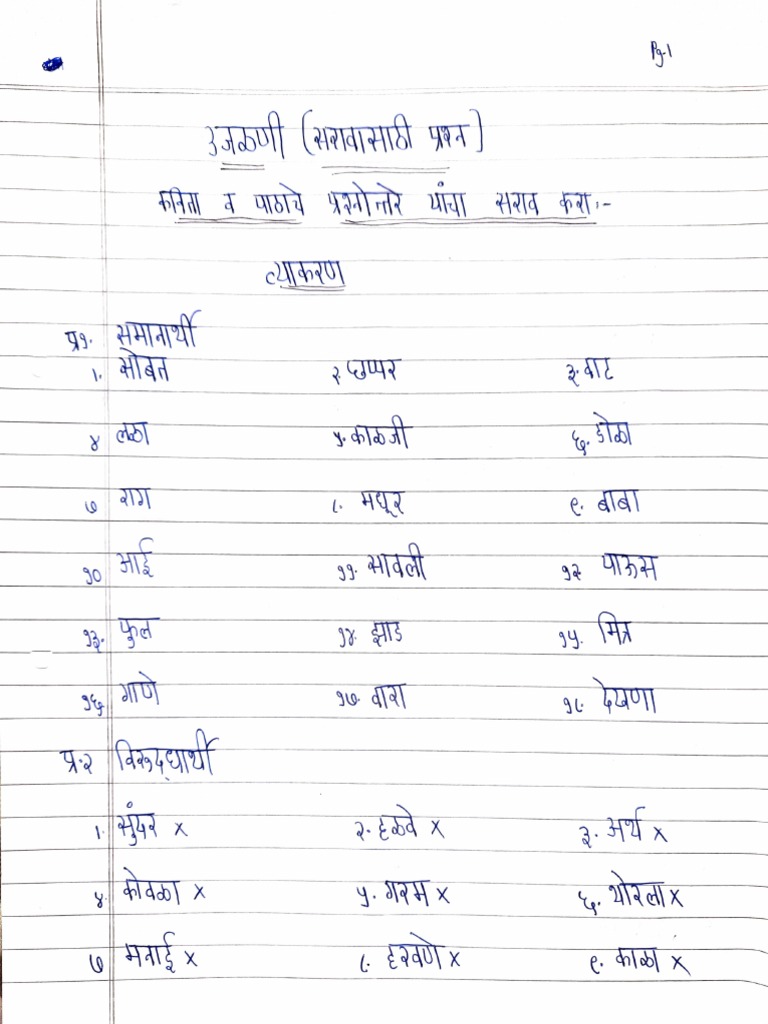 Pg-1
उजळणी (सरावासाठी प्रश्न)
कविता व पाठाचे प्रश्नोत्तरे यांचा सराव करा:-
व्याकरण
प्र१. समानार्थी
१. सोबत २. छप्पर ३. वाट
४ लळा ५. काळजी ६. डोळा
७ राग ८. मधूर ९. बाबा
१० आई ११. सावली १२ पाऊस
१३. फुल १४ झाड १५. मित्र
१६ गाणे १७ वारा १८ देखणा
प्र.२ विरूद्धार्थी
१. सुंदर x २. हळवे x ३. अर्थ x
४ कोवळा x ५. गरम x ६. थोरला x
७ मनाई x ८. हरवणे x ९. काळा x